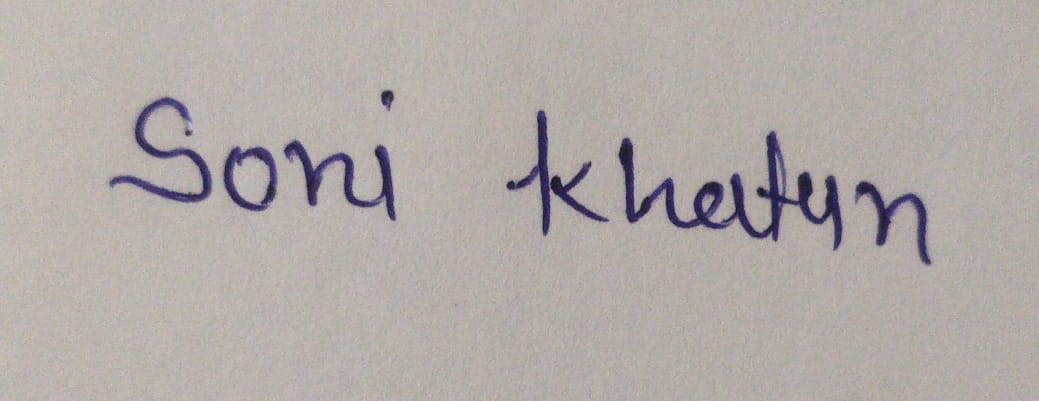 Soni Khatun